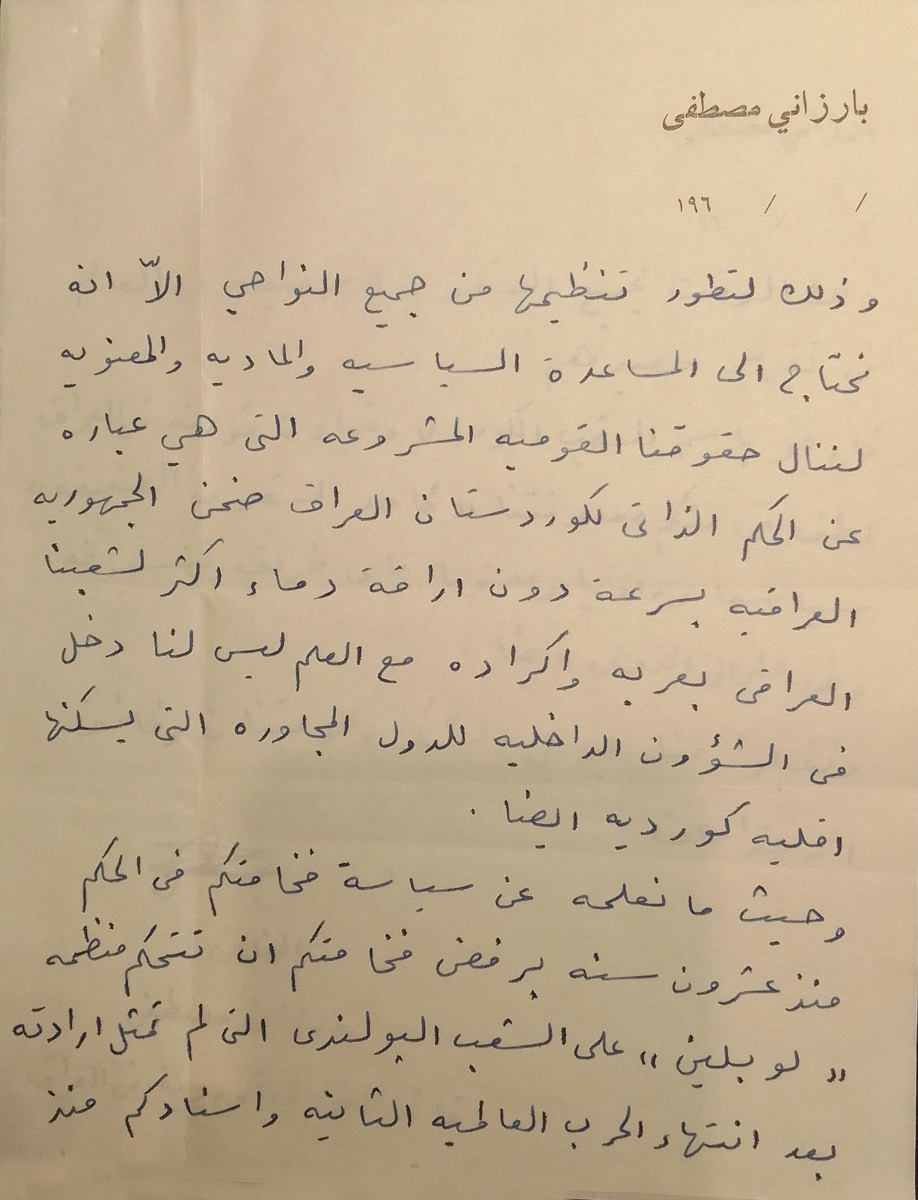 بارزاني مصطفى
/ / ١٩٦
وذلك لتطور تنظيمها من جميع النواحي الاّ انه
نحتاج الى المساعدة السياسيه والماديه والمعنويه
لننال حقوقنا القوميه المشروعه التى هي عباره
عن الحكم الذاتى لكوردستان العراق ضمن الجمهوريه
العراقيه بسرعة دون اراقة دماء اكثر لشعبنا
العراقى بعربه واكراده مع العلم ليس لنا دخل
فى الشؤون الداخليه للدول المجاوره التى يسكنها
اقليه كورديه ايضا .
وحيث ما نعلمه عن سياسة فخامتكم فى الحكم
منذ عشرون سنه برفض فخامتكم ان تتحكم منظمه
" لوبلين " على الشعب البولندى التى لم تمثل ارادته
بعد انتهاء الحرب العالميه الثانيه واسنادكم منذ